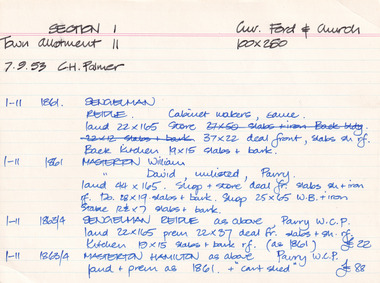 SECTION 1 Cnr. Ford & Church
Town allotment 11 100x250
7.9.53 C.H. Palmer
1-11 1861. SENGELMAN
REIDLE. Cabinet makers, same.
land 22x165 Store 27x50 slabs + iron Back bldg.
22x12 slabs + bark. 37x22 deal front, slabs sh. rf.
Back Kitchen 19x15 slabs + bark.
1-11 1861 MASTERTON William
" David, unlisted, Parry.
land 44x165. Shop + store deal fr. slabs sh + iron
rf. Do. 28x19 slabs + bark. Shop 25x65 W.B. + iron
Store slabs + bark.
1-11 1863/4 SENGELMAN REIDLE as above Parry W.C.P.
land 22x165 prem 22x37 deal fr. slabs + sh. rf.
Kitchen 19x15 slabs + bark rf. (as 1861) £ 22
1-11 1863/4 MASTERTON HAMILTON as above Parry W.C.P.
land + prem as 1861. + cart shed £ 88